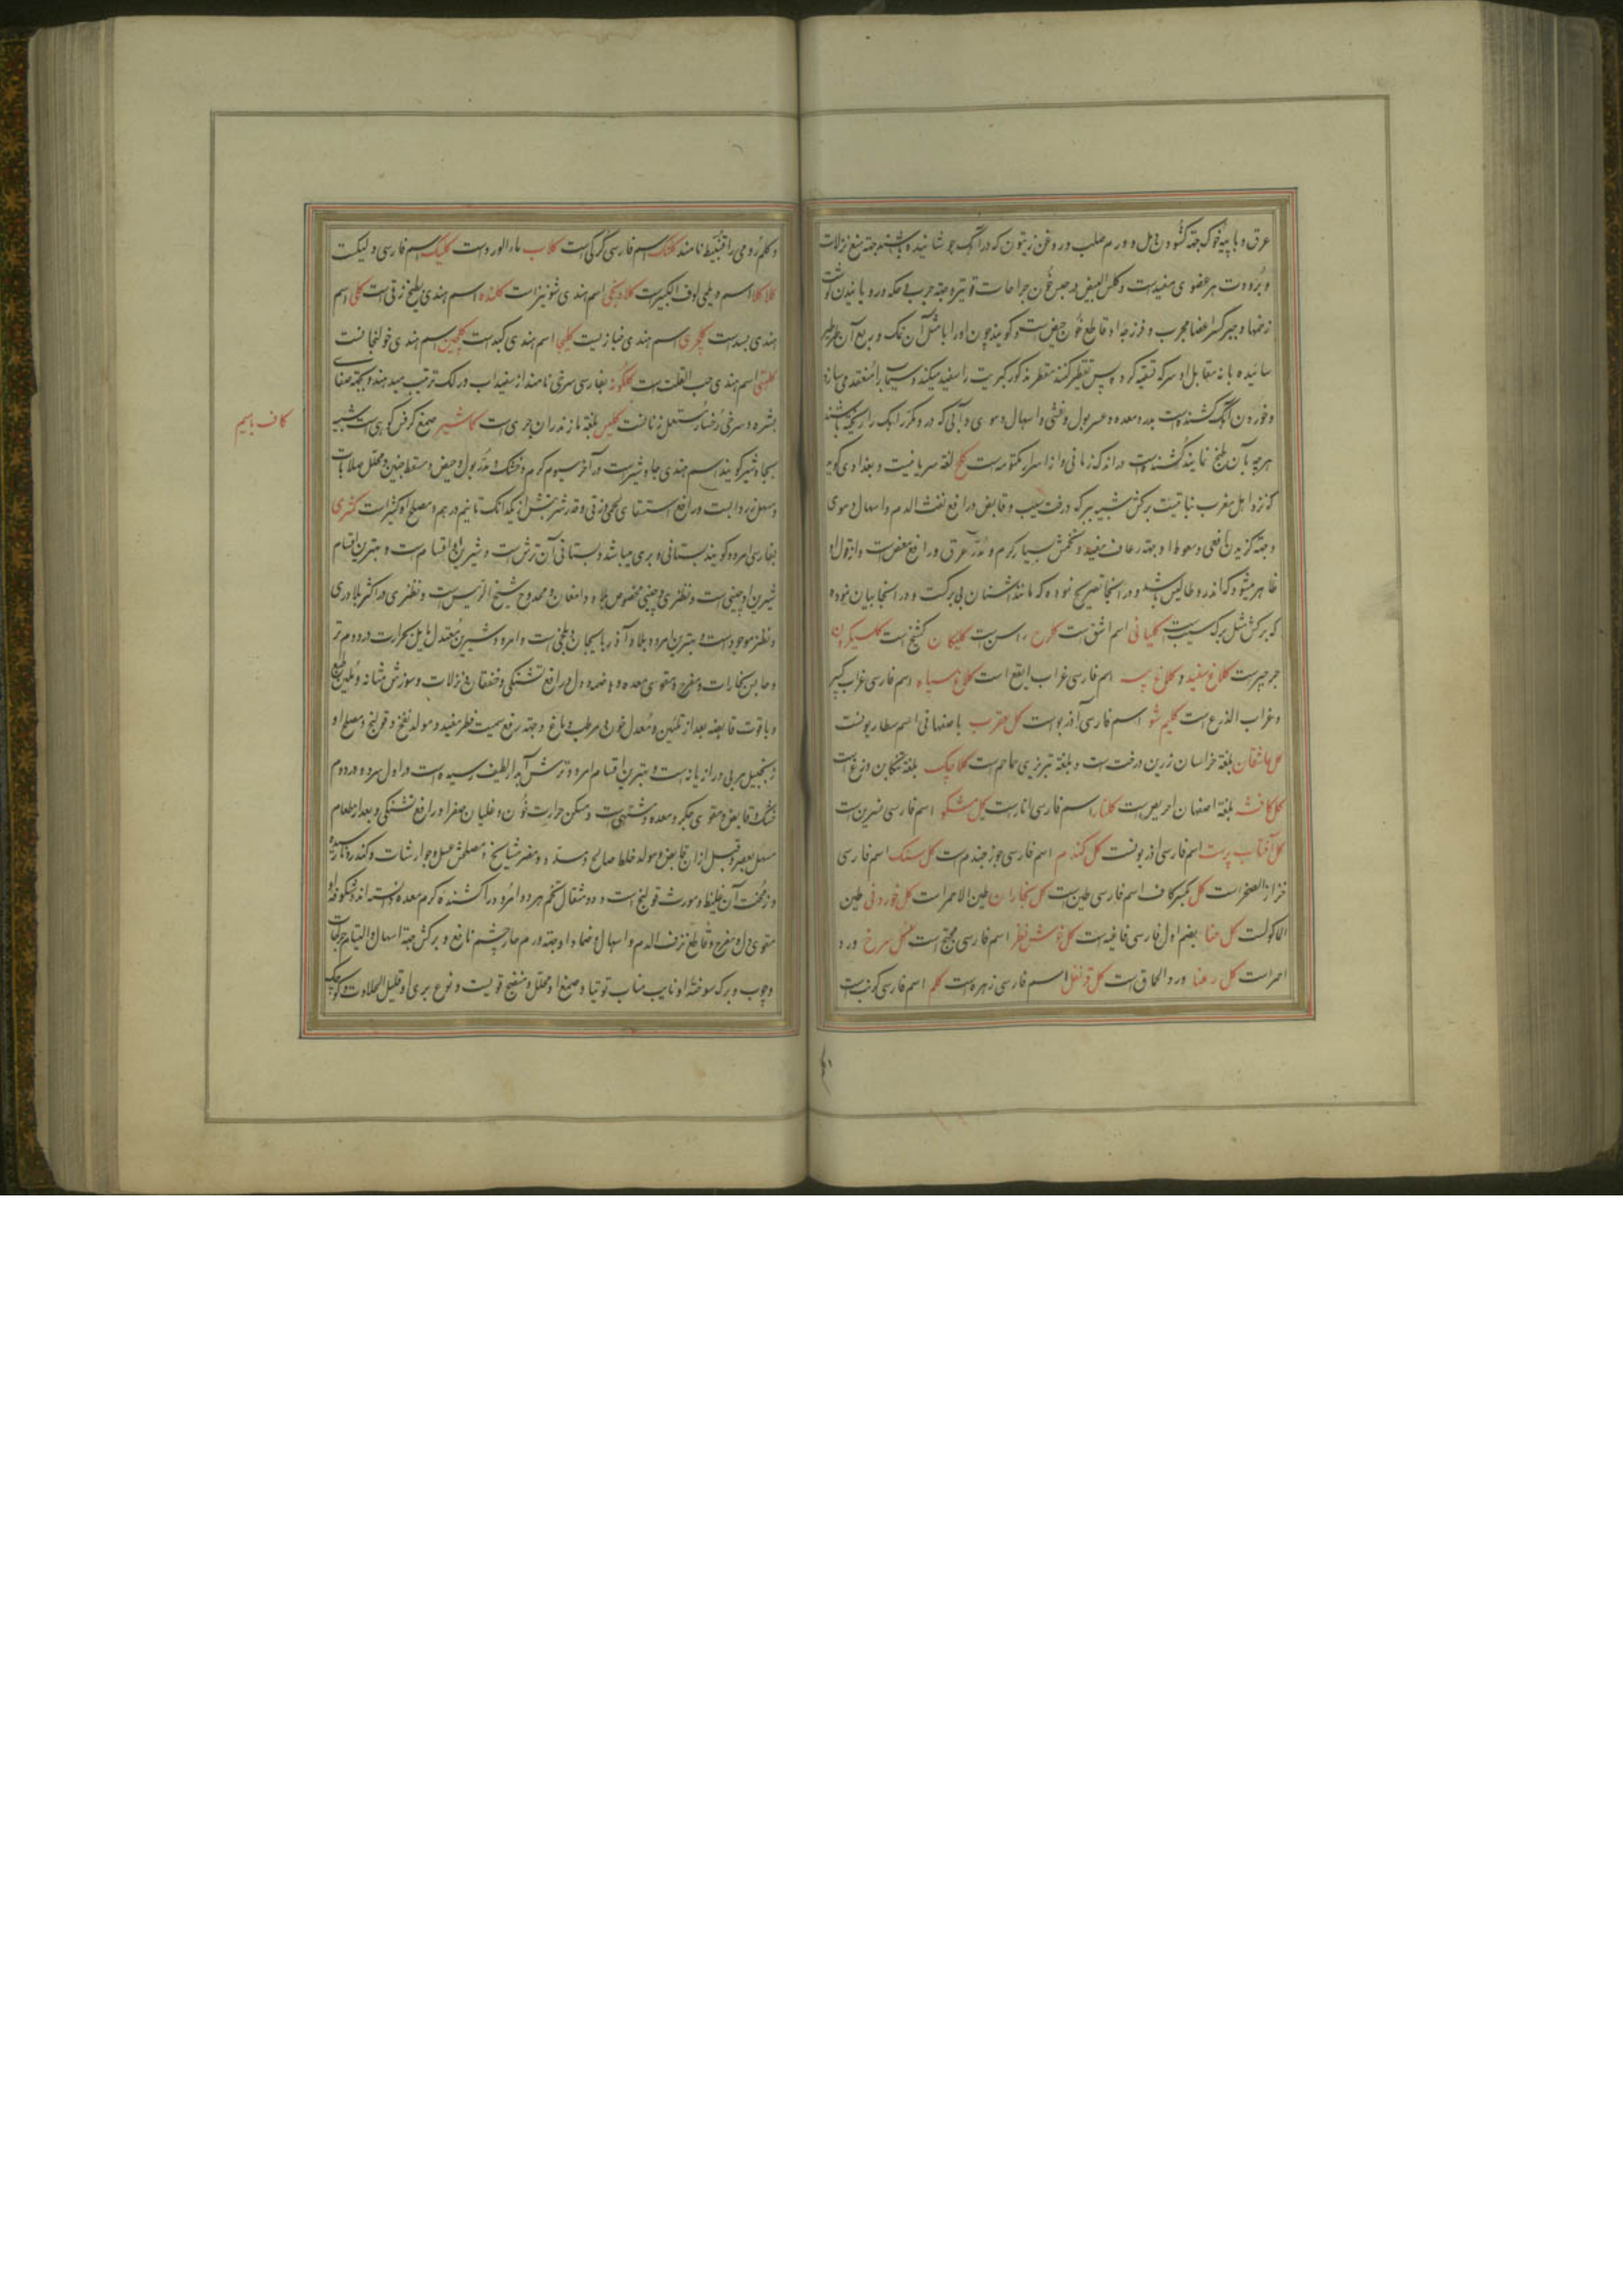 عرق و با پیه خوک جهة گشودن دمل و ورم صلب و روغن زیتون که در آن آهک جوشانیده باشند جهة منع نزلات
و برودت هر عضوی مفیدست و کلس البیض در حبس خون جراحات قویتر و جهة جرب و حکه و رویانیدن گوشت
زخمها و جبر کسر اعضا مجرب و فرزجۀ او قاطع خون حیض است و گویند چون او را با مثل آن نمک و ربع آن
سائیده با نه مقابل او سرکه تسقیه کرده پس تقطیر کنند مقطر مذکور کبریت را سفید میکند و سیماب را منعقد میسازد
و خوردن آهک کشنده است بدرد معده و عسر بول و غشی و اسهال دموی و آبی که در و مکرر آهک را ریخته باشند
هر چه بآن طبخ نمایند کشنده است در اندک زمانی و از اسرار مکتومه است کلخ لغة سریانیست و بغدادی گوید
که نزد اهل مغرب نباتیست برگش شبیه ببرگ درخت سیب و قابض و رافع نفث الدم و اسهال دموی
و جهة گزیدن افعی و سعوط او جهة رعاف مفید و تخمش بسیار گرم و مدر عرق و رافع مغص است و از قول او
ظاهر میشود که اندروطالیس باشد و در اینجا تصریح نموده که مانند اشنان بی برگست و در اینجا بیان نموده
که برگش مثل برگ سیب است کلیانی اسم اشق است کلرح راسن است کلیکان کشنج است کلسیکرون
جرجیرست کلاغ سفید و کلاغ پیسه اسم فارسی غراب ابقع است کلاغ سیاه اسم فارسی غراب کبیر
و غراب الذرع است کلیم شو اسم فارسی آذربو است کل عقرب باصفهانی اسم سطاریونست
کل عاشقان بلغة خراسان زرین درخت است و بلغة تبریزی حماحم است کلاجیک بلغة تنکابن وزغ است
کل کافشه بلغة اصفهان احریض است کلنار اسم فارسی انارست کل مشکو اسم فارسی نسرین است
کل آفتاب پرست اسم فارسی اذریونست کل کندم اسم فارسی جوز جندم است کل سنک اسم فارسی
خزاز الصخر است کل بکسر کاف اسم فارسی طین است کل بخاران طین الاحمر است کل خوردنی طین
الماکولست کل حنا بضم اول فارسی فاغیه است کل خوش نظر اسم فارسی مجنح است کل سرخ ورد
احمر است کل رعنا ورد الحماق است کل قرنفل اسم فارسی زهره است کلم اسم فارسی کرنب است
و کلم رومی را قنبیط نامند کلنک اسم فارسی کرکی است کلاب ماء الورد است کلیک اسم فارسی دلیکست
کلا کلا اسم دیلمی لوف الکبیرست کلادنجی اسم هندی شونیز است کلنده اسم هندی بطیخ زقی است کلی اسم
هندی بسد است کلجری اسم هندی خبازیست کلیجا اسم هندی کبد است کلجین اسم هندی خولنجانست
کلتهی اسم هندی حب القلت است کلکونه بفارسی سرخی نامند از سفیداب و رلک ترتیب میدهند و بجهة صفای
بشره و سرخی رخسار مستعمل زنانست کلیس بلغة مازندران جری است کاشیر صمغ کرفس کوهی است شبیه
بجاوشیر گویند اسم هندی جاوشیر است در آخر سیوم گرم و خشک و مدر بول و حیض و مسقط جنین و محلل صلابات
و مسهل زرداب است و رافع استسقای لحمی و زقی و قدر شربتش از یکدانک تا نیم درهم و مصلح او کتیراست کمثری
بفارسی امرود گویند بستانی و بری میباشد و بستانی آن ترش است و شیرین و اقسام است و بهترین اقسام
شیرین او چینی است و نطنزی و چینی مخصوص بلاد دامغان و ممدوح شیخ الرئیس است و نطنزی در اکثر بلاد ری
و نطنز موجود است و بهترین امرود بلاد آذربایجان و بلخی است و امرود شیرین معتدل مایل بحرارت در دوم تر
و حابس بخارات و مفرح و مقوی معده و هاضمه و دل و رافع تشنگی و خفقان و نزلات و سوزش مثانه و ملین طبع
و با قوت قابضه بعد از تلیین و معدل خون و مرطب دماغ و جهة رفع سمیت فطر مفید و مولد نفخ و قولنج و مصلح او
زنجبیل مربی و رازیانه است و بهترین اقسام امرود ترش آبدار لطیف رسیده است در اول سرد و در دوم
خشک و قابض و مقوی جگر و معده و مشتهی است و مسکن حرارت خون و غلیان صفرا و رافع تشنگی و بعد از طعام
مسهل بعصر و قبل از آن قابض و مولد خلط صالح و مسدد و مضر مشایخ و مصلحش عسل و جوارشات و کندر و
و زمخت آن غلیظ و مورث قولنج است و دو مثقال تخم هر دو امرود را کشنده کرم معده دانسته اند و شکوفۀ او
مقوی دل و مفرح و قاطع نزف الدم و اسهال و ضماد او جهة ورم حار چشم نافع و برگش جهة اسهال و التیام جراحات
و چوب و برگ سوختۀ او نایب مناب توتیا و صمغ او محلل و منضج قویست و نوع بری او قلیل الحلاوت و کوچک
کاف بامیم